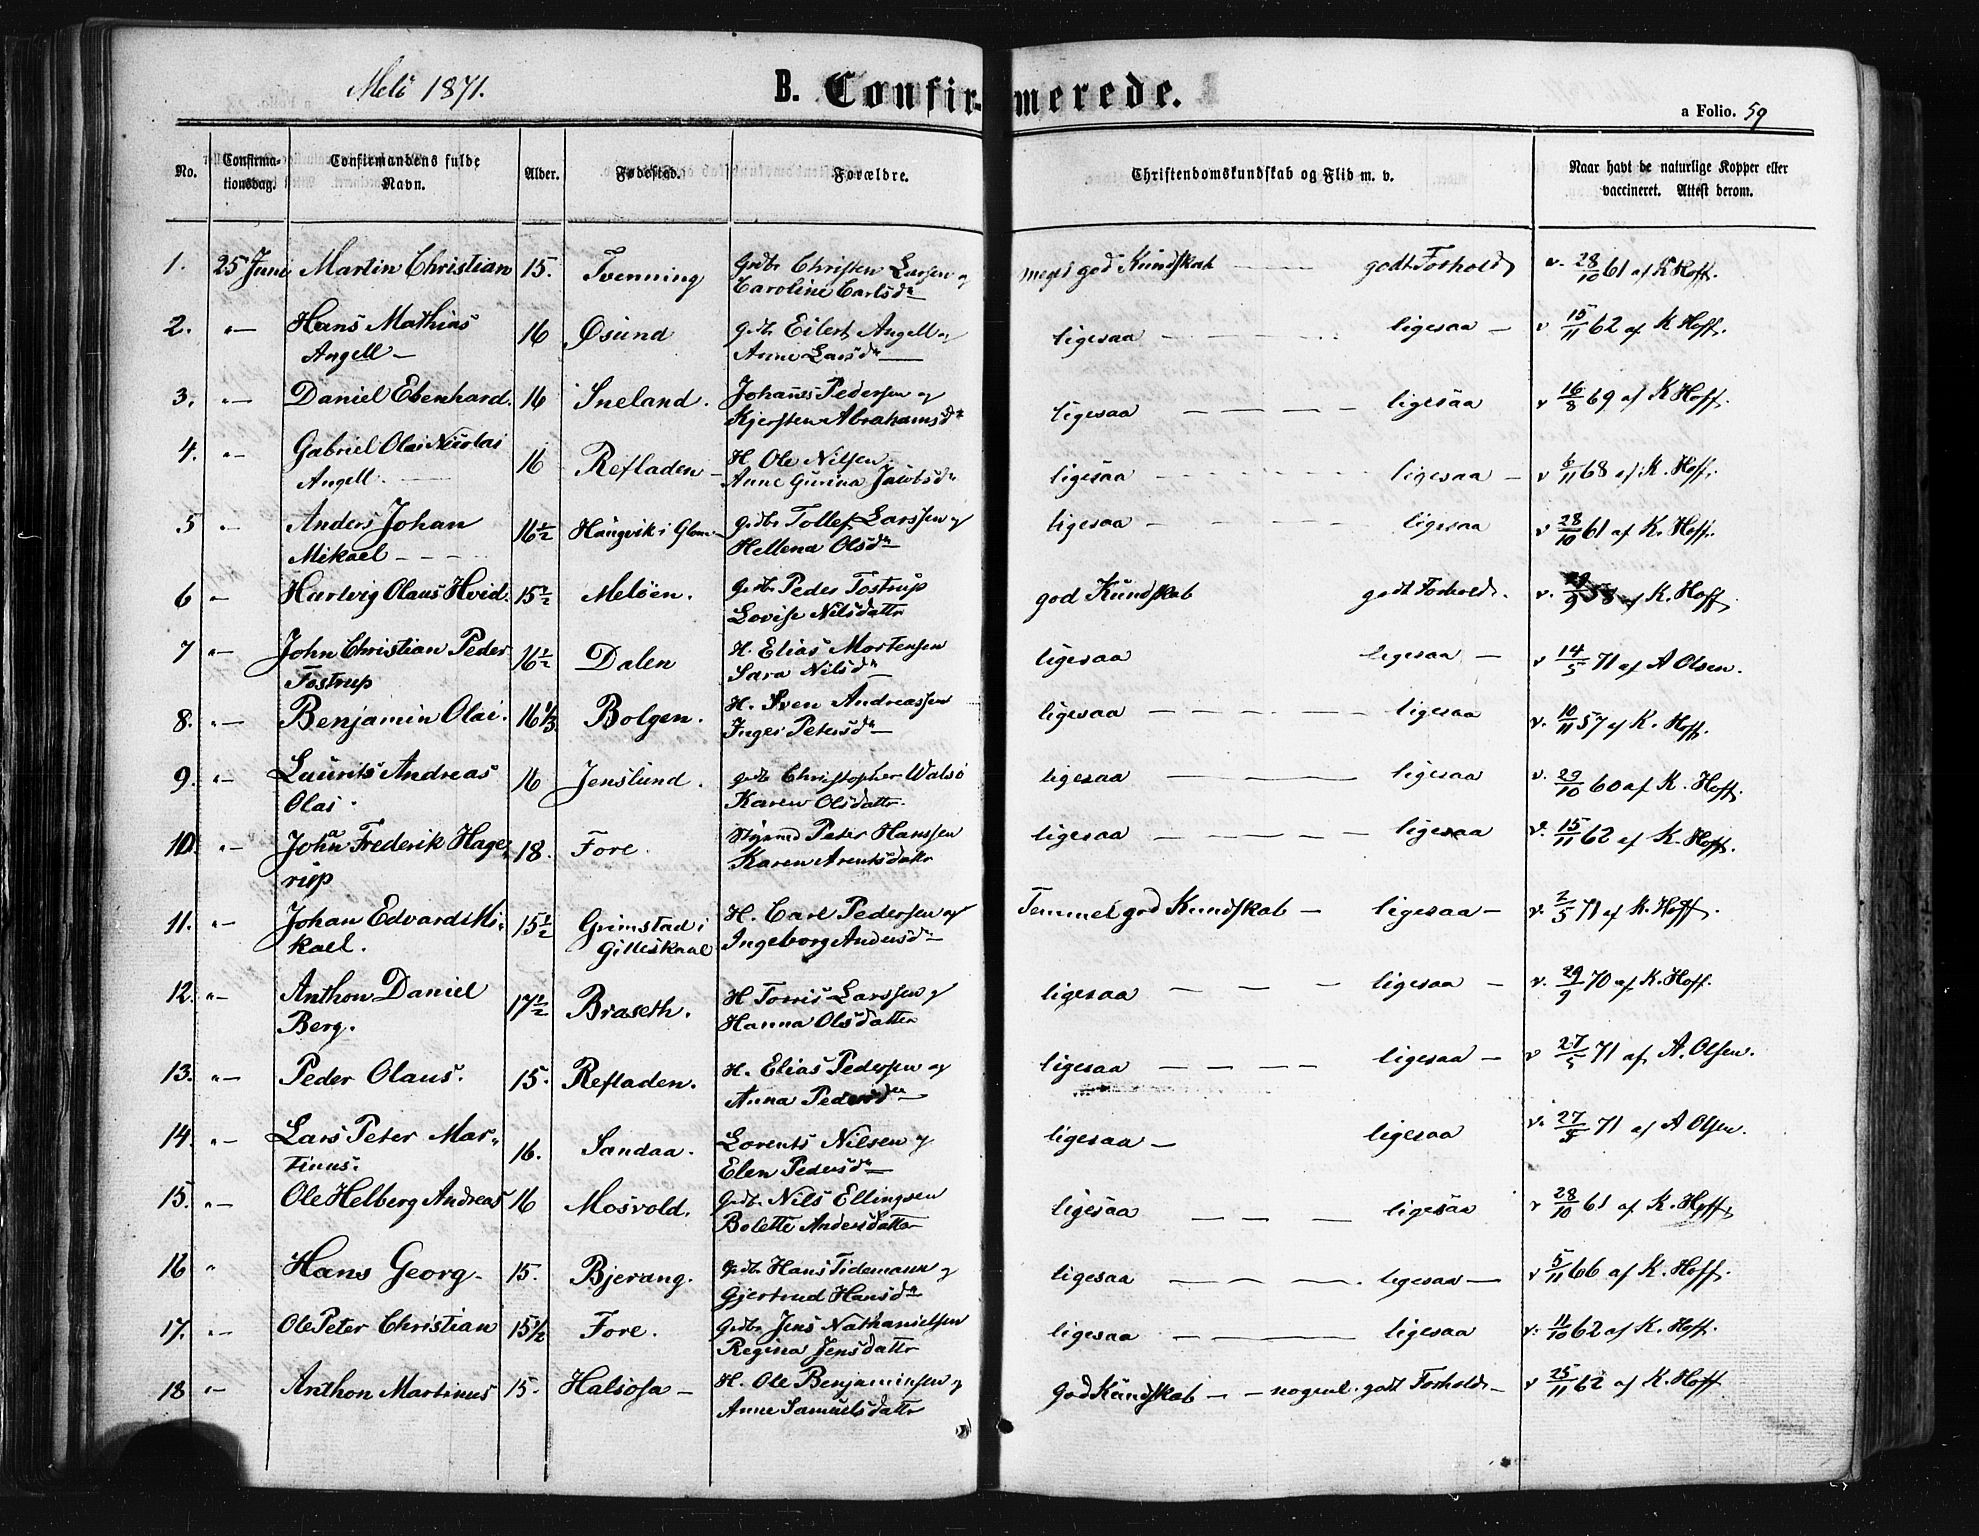 Melö 1871.
B. Confirmerede.
a Folio. 59
No.
Confirmationsdag.
Confirmandens fulde Navn.
Alder.
Fødested.
Forældre.
Christendomskundskab og Flid m. v.
Naar havt de naturlige Kopper eller vaccineret. Attest derom.
1. 25 Juni Martin Christian 15. Tvenning Grdbr Christen Larsen og meget god Kundskab — godt Forhold v. 28/10 61 af K Hoff.
Caroline Carlsdr
2. "— Hans Mathias 16 Øsund Grdbr Eilert Angell og ligesaa — ligesaa — v 15/11 62 af K Hoff.
Angell — Anne Larsdr —
3. "— Daniel Ebenhard. 16 Sneland. Johannes Pedersen og ligesaa — ligesaa v 16/8 69 af K Hoff.
Kjersten Abrahamsdr
4. "— Gabriel Olai Nicolai 16 Refladen — H. Ole Nilsen. ligesaa — ligesaa — v 6/11 68 af K. Hoff.
Angell. — Anne Gurina Jacobsdr
5 "— Anders Johan 16½ Haugvik i Glom — Grdbr Tollef Larssen og ligesaa — ligesaa v 28/10 61 af K. Hoff.
Mikael — Hellena Olsdr
6 "— Hartvig Olaus Hvid. 15½ Melöen. Grdb. Peder Tostrup god Kundskab godt Forhold. v. /9 58 af K. Hoff.
Lovise Nilsdattr
7 "— John Christian Peder 16½ Dalen H. Elias Mortensen ligesaa ligesaa — v 14/5 71 af A Olsen.
Tostrup Sara Nilsdr
8. "— Benjamin Olai. 16 1/3 Bolgen. H. Sven Andreassen ligesaa — ligesaa v. 10/11 57 af K. Hoff.
Inger Petersdr
9. "— Laurits Andreas 16 Jenslund. Grdb Christopher Walsö ligesaa — ligesaa v. 29/10 60 af K. Hoff.
Olai. Karen Olsdattr.
10. "— Johan Frederik Hage- 18. Fore. Peter Hanssen ligesaa — ligesaa v. 15/11 62 af K. Hoff.
rup Karen Arentsdattr
11. "— Johan Edvard Mi- 15½ Grimstad i H. Carl Pedersen og Temmel. god Kundskab — ligesaa — v. 2/5 71 af K. Hoff.
kael. Gilleskaal Ingeborg Andersdr
12. "— Anthon Daniel 17½ Braseth. H Torris Larssen og ligesaa — ligesaa — v. 29/9 70 af K. Hoff.
Berg. Hanna Olsdatter
13. "— Peder Olaus. 15. Refladen. H. Elias Pedersen og ligesaa — ligesaa — v 27/5 71 af A. Olsen.
Anna Pedersdr
14. "— Lars Peter Mar- 16. Sandaa. Lorents Nilsen og ligesaa — ligesaa v. 27/5 71 af A Olsen.
tinus. Elen Pedersdr
15. "— Ole Helberg Andreas 16 Mosvold. Grdb. Nils Ellingsen ligesaa — ligesaa v 28/10 61 af K. Hoff.
Bolette Andersdatter
16 " Hans Georg. 15. Bjerang. Grdb. Hans Tidemann og ligesaa — ligesaa — v 5/11 66 af K. Hoff.
Gjertrud Hansdr
17. "— Ole Peter Christian 15½ Fore. Grdbr Jens Nathanielsen ligesaa — ligesaa v. 11/10 62 af K. Hoff.
Regina Jensdattr
18 "— Anthon Martinus 15. Halsosa — H. Ole Benjaminsen og god Kundskab — nogenl. godt Forhold — v 25/11 62 af K. Hoff
Anne Samuelsdattr